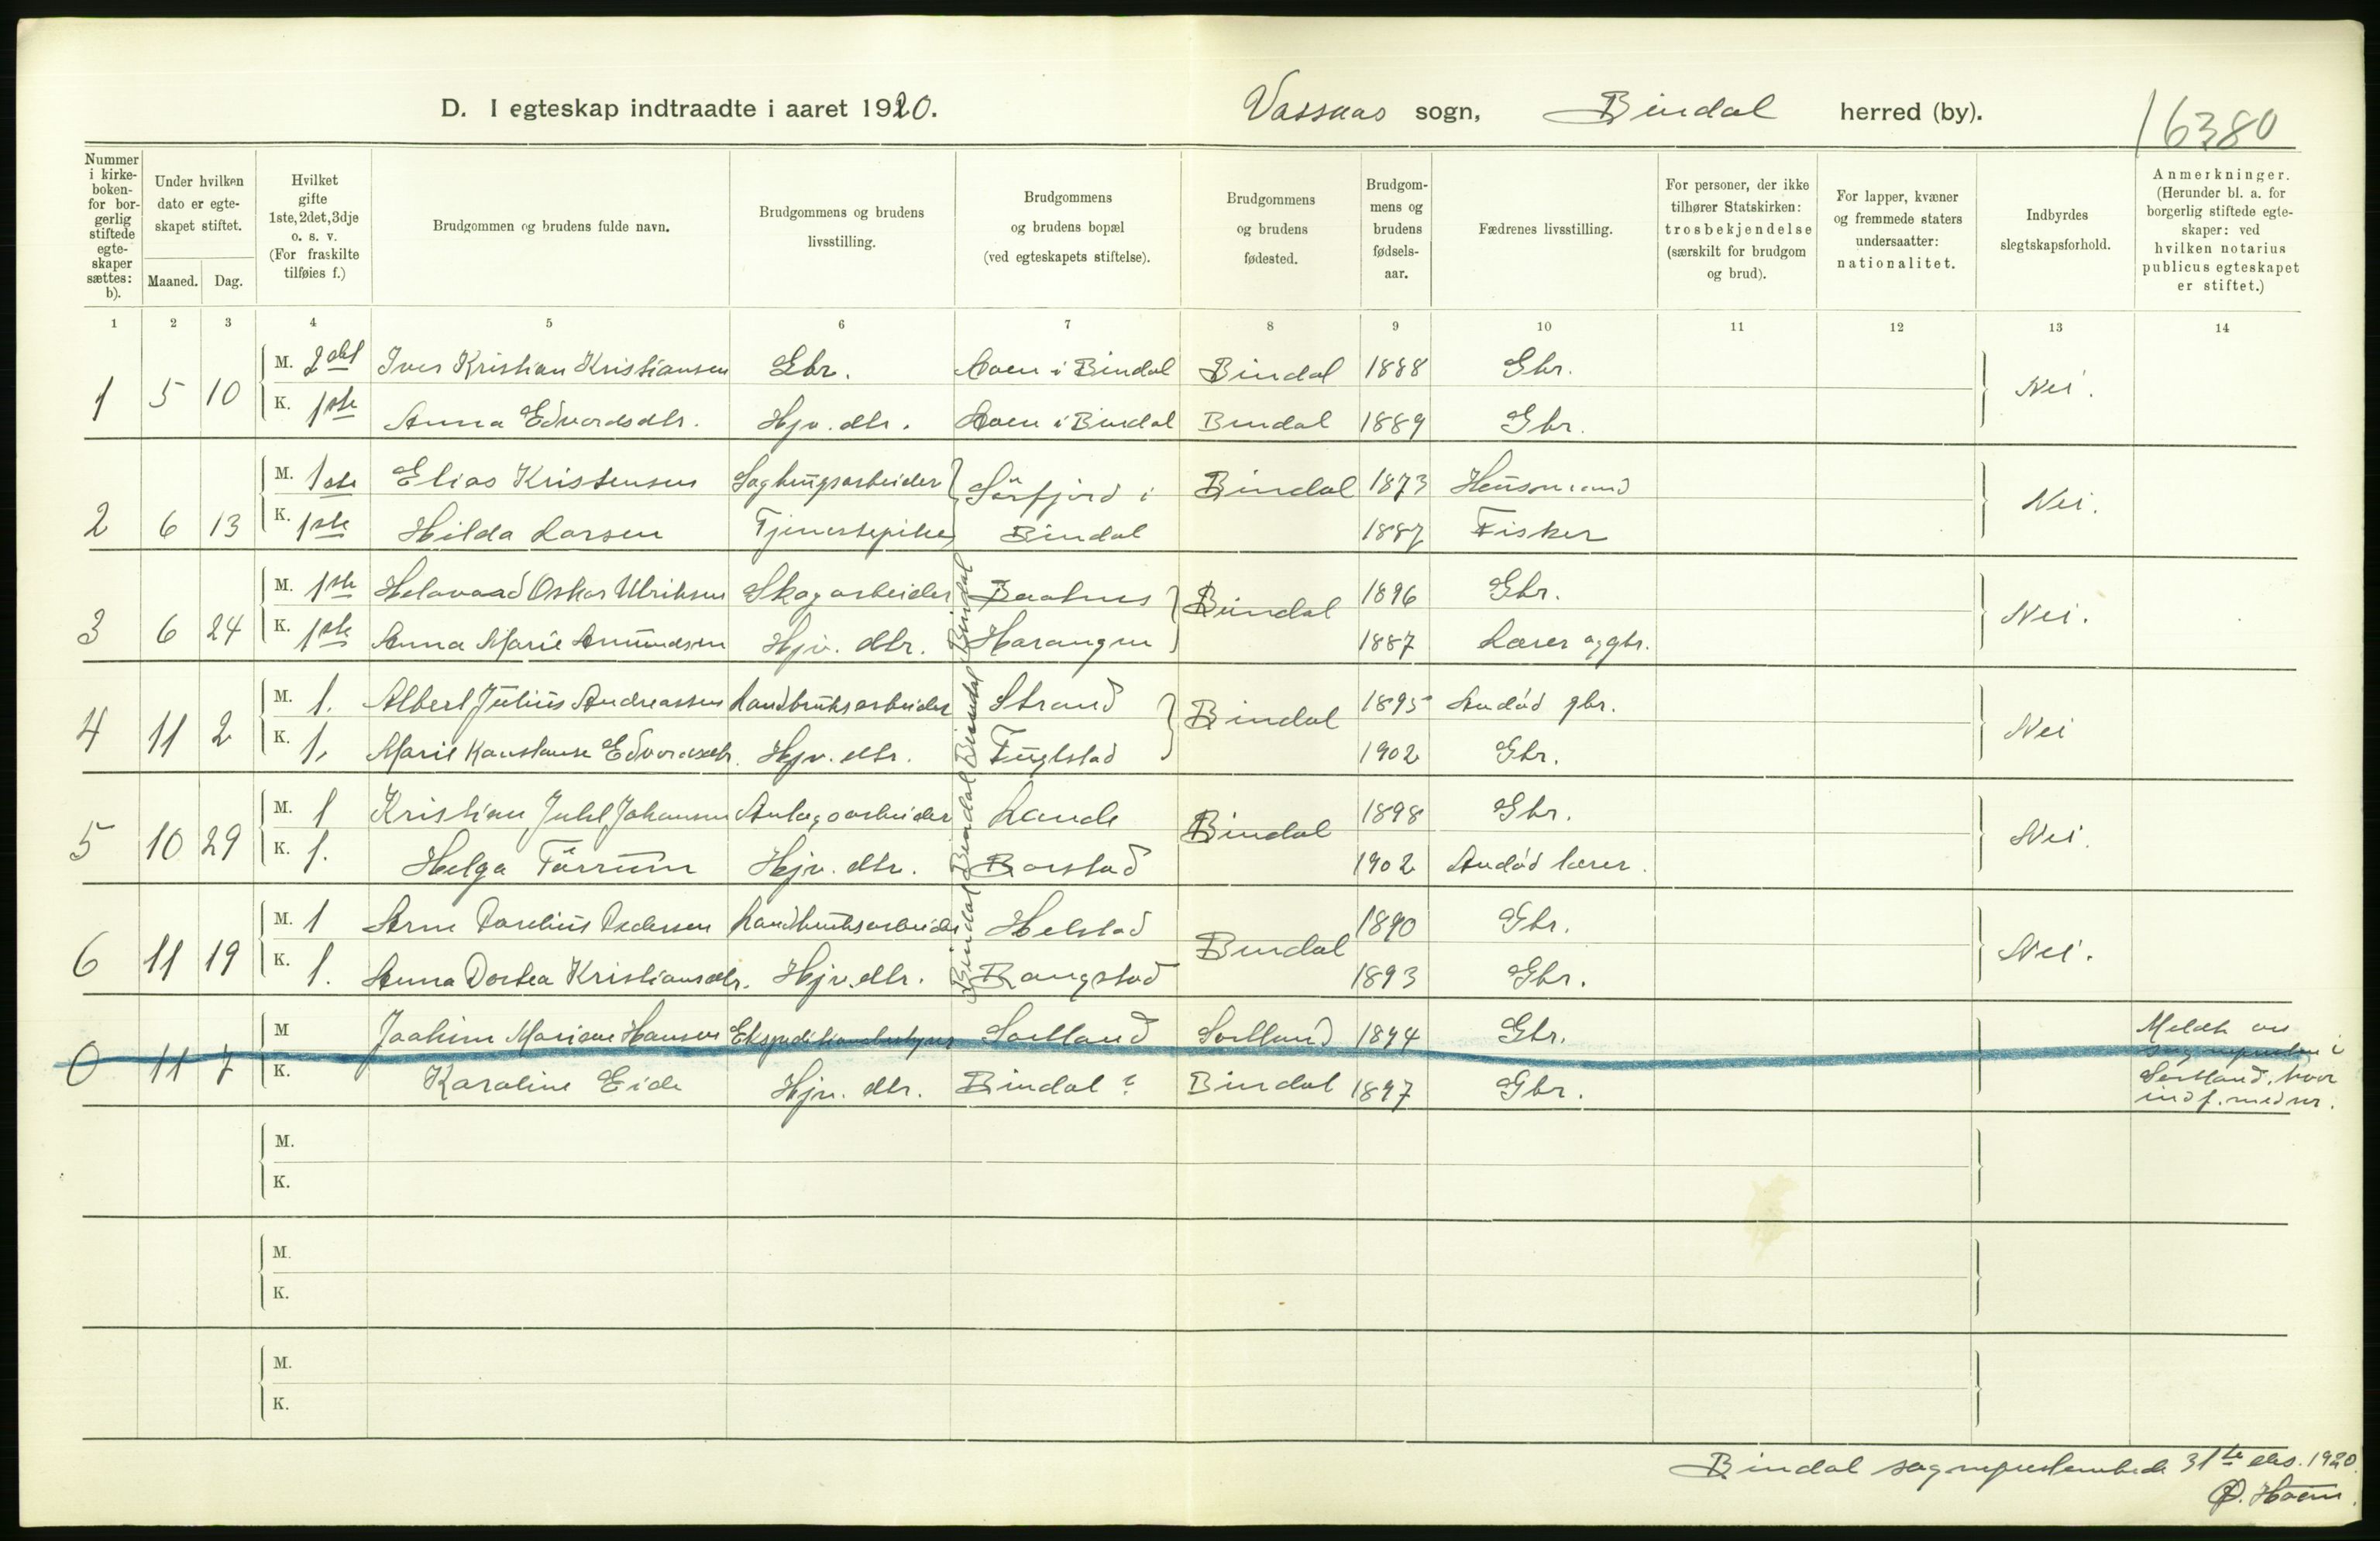 D. I egteskap indtraadte i aaret 1920. Vassaas sogn, Bindal herred (by). 16380
Nummer i kirkeboken- for borgerlig stiftede egteskaper sættes: b).
Under hvilken dato er egteskapet stiftet.
Maaned. Dag.
Hvilket gifte 1ste, 2det, 3dje o. s. v. (For fraskilte tilføies f.)
Brudgommen og brudens fulde navn.
Brudgommens og brudens livsstilling.
Brudgommens og brudens bopæl (ved egteskapets stiftelse).
Brudgommens og brudens fødested.
Brudgommens og brudens fødselsaar.
Fædrenes livsstilling.
For personer, der ikke tilhører Statskirken: trosbekjendelse (særskilt for brudgom og brud).
For lapper, kvæner og fremmede staters undersaatter: nationalitet.
Indbyrdes slegtskapsforhold.
Anmerkninger. (Herunder bl. a. for borgerlig stiftede egteskaper: ved hvilken notarius publicus egteskapet er stiftet.)
1 2 3 4 5 6 7 8 9 10 11 12 13 14
M. 2det Iver Kristian Kristiansen Gbr. Aaen i Bindal Bindal 1888 Gbr.
1 5 10 K. 1ste Anna Edvardsdtr. Hjv. dtr. Aaen i Bindal Bindal 1889 Gbr. Nei.
M. 1ste Elias Kristensen Sagbrugsarbeider Sörfjord i Bindal 1873 Husmand
2 6 13 K. 1ste Hilda Larsen Tjenestepike Bindal 1887 Fisker Nei.
M. 1ste Oskar Ulriksen Skogarbeider Bindal Bindal 1896 Gbr.
3 6 24 K. 1ste Anna Marie Amundsen Hjv. dtr. Harangen 1887 Lærer og gbr. Nei.
M. 1. Albert Julius Andreassen Landbruksarbeider Bindal Strand Bindal 1895 Andöd gbr.
4 11 2 K. 1. Marie Konstanse Edvardsdtr. Hjv. dtr. Fuglstad 1902 Gbr. Nei
M. 1 Kristian Juhl Johansen Anlegsarbeider Bindal Lande Bindal 1898 Gbr.
5 10 29 K. 1. Helga Törrum Hjv. dtr. Barstad 1902 Andöd lærer. Nei.
M. 1 Arne Parelius Pedersen Landbruksarbeider Bindal Helstad Bindal 1890 Gbr.
6 11 19 K. 1. Anna Dortea Kristiansdtr. Hjv. dtr. Bangstad 1893 Gbr. Nei.
M Joakim Hansen Ekspeditionsbestyrer Sortland Sortland 1894 Gbr. Meldt av
0 11 7 K. Karoline Eide Hjv. dtr. Bindal ? Bindal 1897 Gbr. sognepresten i
Sortland, hvor
indf. med nr.
M.
K.
M.
K.
M.
K.
Bindal sogneprestembede 31te des. 1920.